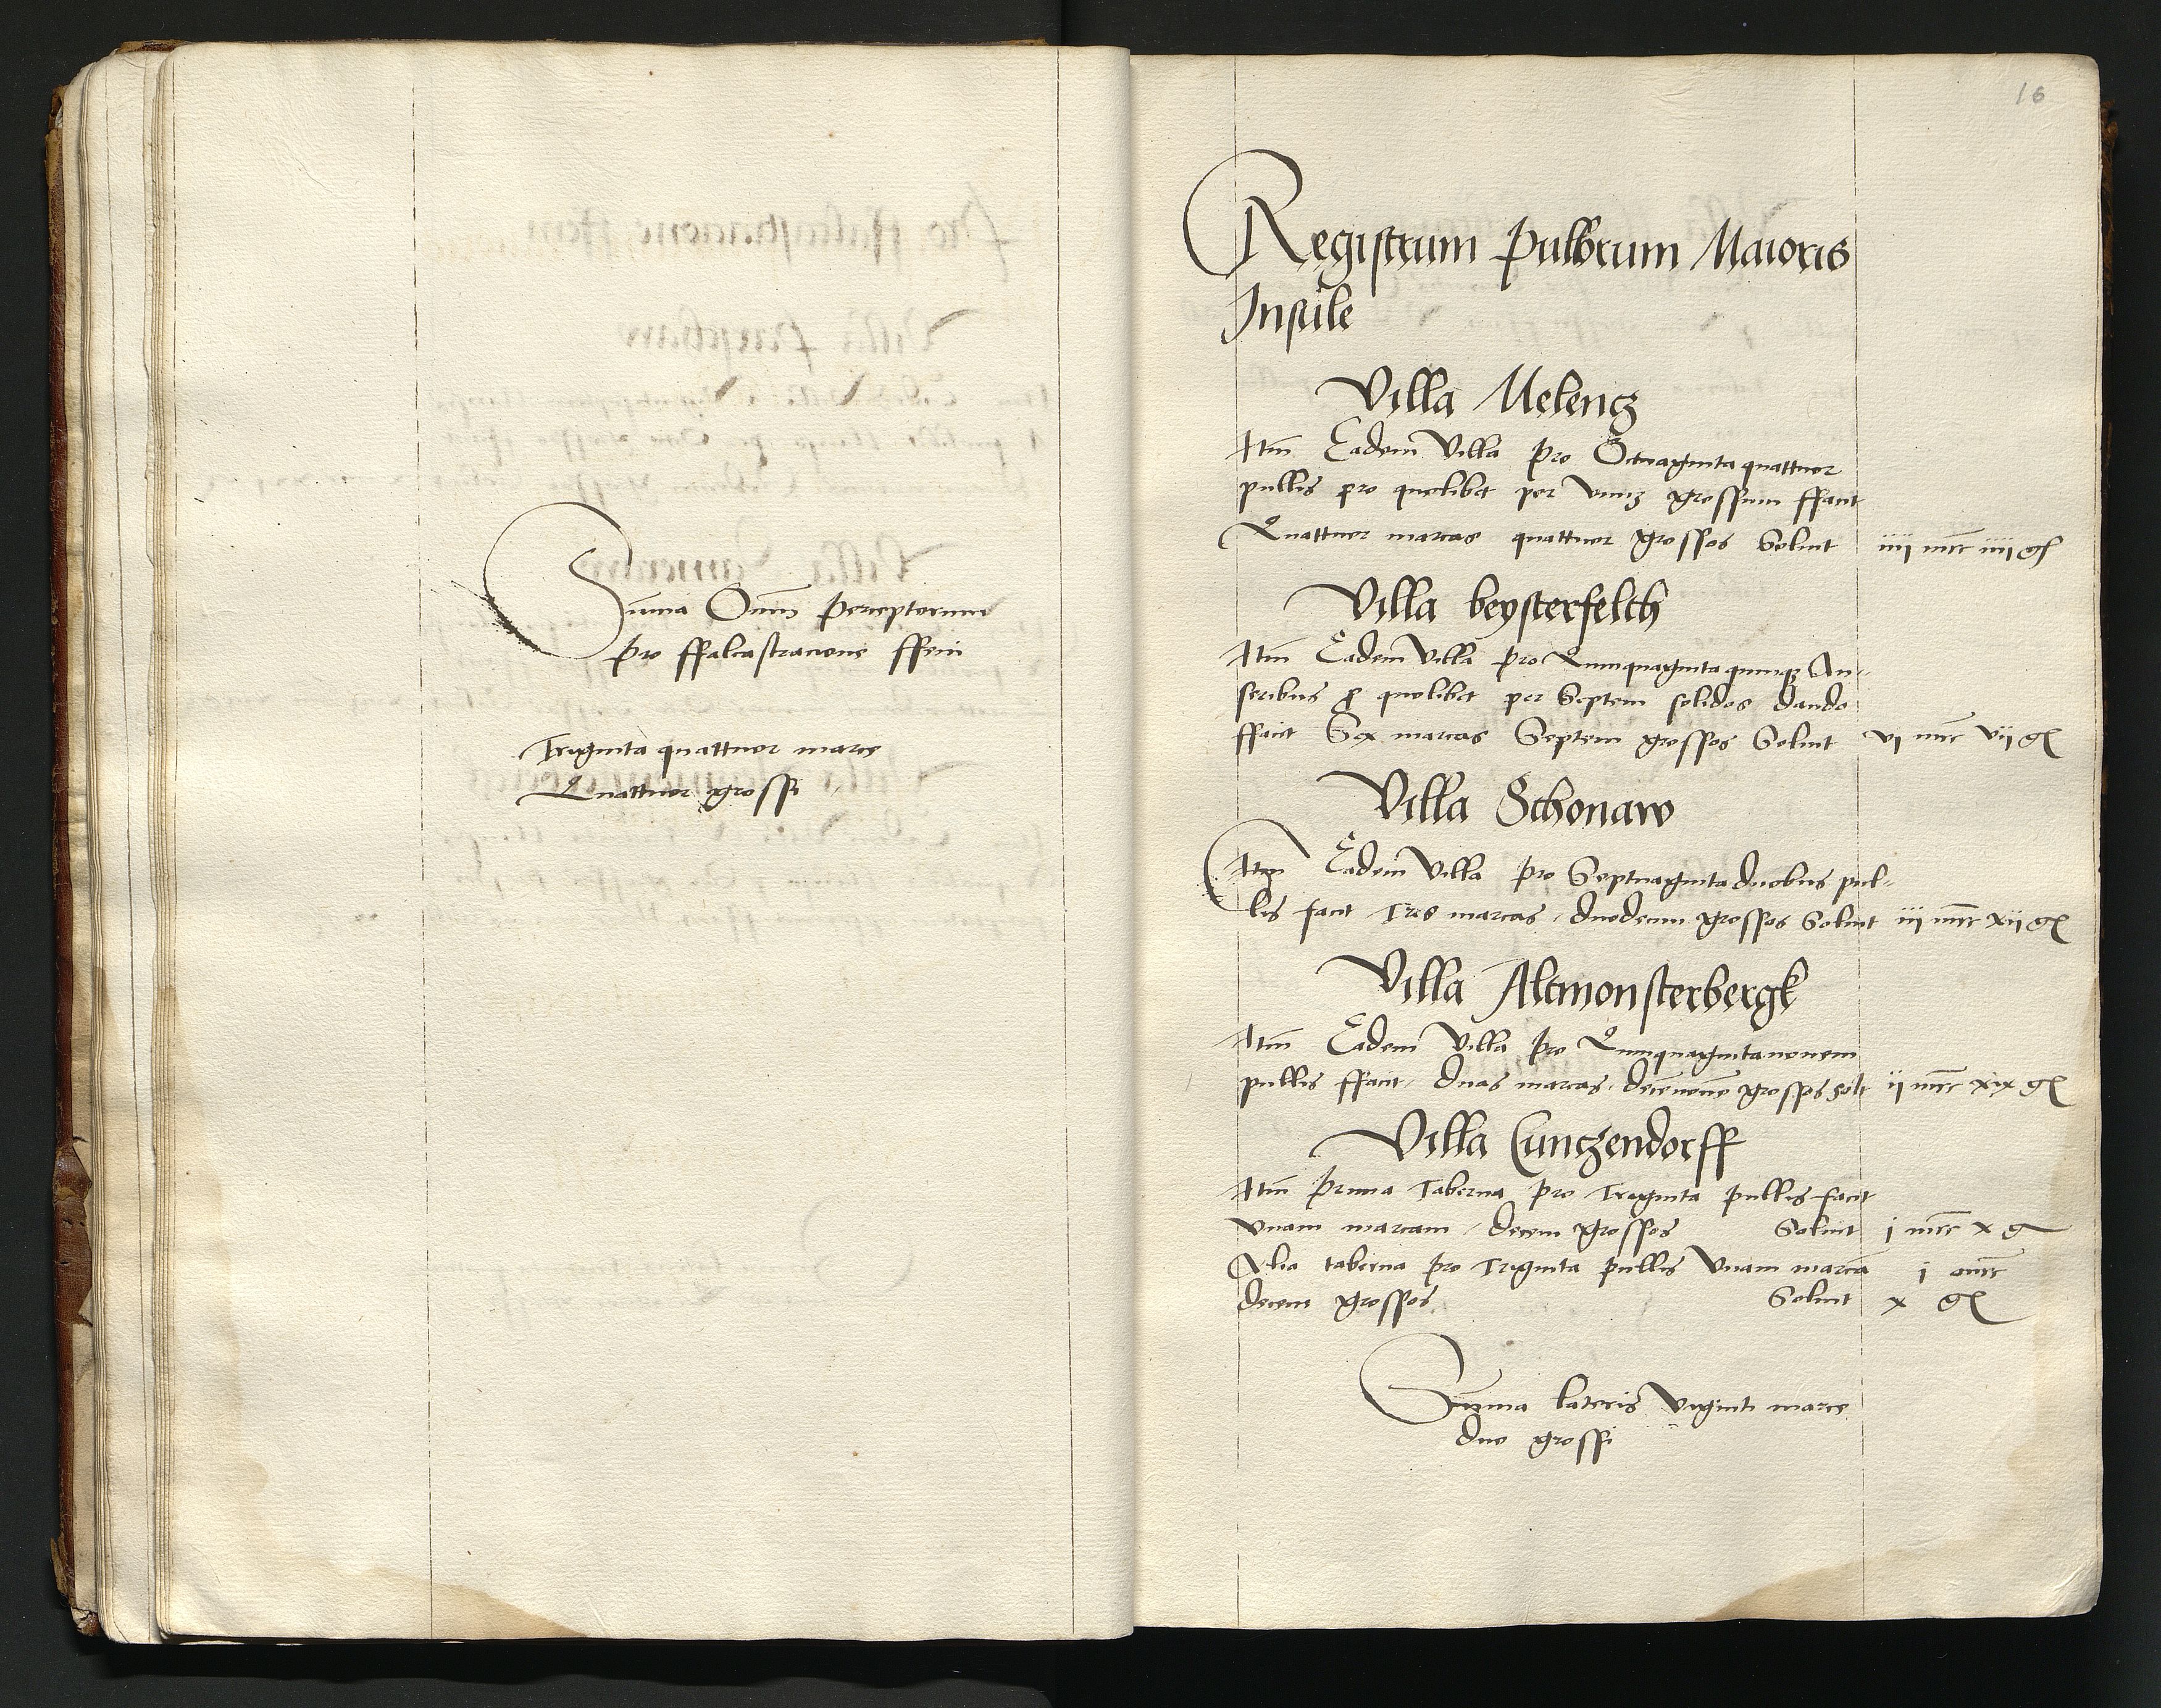 Suma Oim perceptorum
pro ffalcastracione ffeni
Triginta quattuor marce
Quattuor grossi
16
Registrum pullorum Maioris
Insule
Villa Melencz
Itm Eadem Villa pro Octuaginta quattuor
pullis pro quolibet per vnuz grossum ffacit
Quattuor marcas quattuor grossos Soluit iiij mrc iiij gs
Villa beysterfelth
Itm Eadem Villa pro Quinquaginta quinqz An-
seribus p quolibet per Septem solidos dando
ffacit Sex marcas Septem grossos Soluit vj mrc vij gs
Villa Schonaw
Itm Eadem Villa pro Septuaginta duobus pul-
lis facit Tres marcas duodecim grossos Soluit iij mrc xij gs
Villa Altmonsterbergk
Itm Eadem Villa pro Quinquaginta nouem
pullis ffacit duas marcas decenoue grossos solt ij mrc xix gs
Villa Cunczendorff
Itm Prima Taberna pro Triginta pullis facit
vnam marcam / decem grossos Soluit j mrc x g
Alia taberna pro Triginta pullis Vnam marca j mrc
decem grossos Soluit x gs
Suma lateris viginti marce
duo grossi